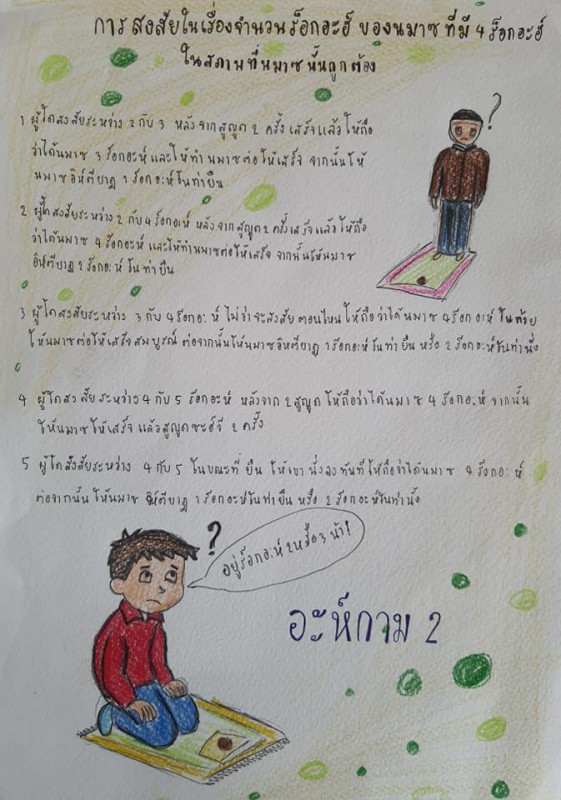 การสงสัยในเรื่องจำนวนร็อกอะฮ์ ของนมาซที่มี 4 ร็อกอะฮ์
ในสภาพที่นมาซนั้นถูกต้อง
?
1 ผู้ใดสงสัยระหว่าง 2 กับ 3 หลังจากสุญูด 2 ครั้งเสร็จแล้ว ให้ถือ
ว่าได้นมาซ 3 ร็อกอะห์ และให้ทำนมาซต่อให้เสร็จ จากนั้นให้
นมาซอิห์ติยาฏ 1 ร็อกอะห์ในท่ายืน
2 ผู้ใดสงสัยระหว่าง 2 กับ 4 ร็อกอะห์ หลังจากสุญูด 2 ครั้งเสร็จแล้ว ให้ถือ
ว่าได้นมาซ 4 ร็อกอะห์ และให้ทำนมาซต่อให้เสร็จ จากนั้นให้นมาซ
อิห์ติยาฏ 2 ร็อกอะห์ ในท่ายืน
3 ผู้ใดสงสัยระหว่าง 3 กับ 4 ร็อกอะห์ ไม่ว่าจะสงสัยตอนไหนให้ถือว่าได้นมาซ 4 ร็อกอะห์
ให้นมาซต่อให้เสร็จสมบูรณ์ ต่อจากนั้นให้นมาซอิห์ติยาฏ 1 ร็อกอะห์ในท่ายืน หรือ 2 ร็อกอะห์ในท่านั่ง
4 ผู้ใดสงสัยระหว่าง 4 กับ 5 ร็อกอะห์ หลังจาก 2 สุญูด ให้ถือว่าได้นมาซ 4 ร็อกอะห์ จากนั้น
ให้นมาซให้เสร็จ แล้วสุญูดซะฮ์วี 2 ครั้ง
5 ผู้ใดสงสัยระหว่าง 4 กับ 5 ในขณะที่ยืน ให้เขานั่งลงทันทีให้ถือว่าได้นมาซ 4 ร็อกอะห์
ต่อจากนั้นให้นมาซ อิห์ติยาฏ 1 ร็อกอะห์ในท่ายืน หรือ 2 ร็อกอะห์ในท่านั่ง
?
อยู่ร็อกอะห์ 2 หรือ 3 น้า!
อะห์กาม 2